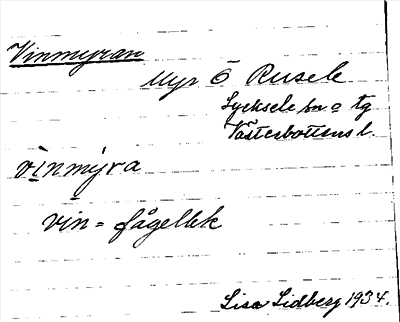 Vinmyran
Myr Ö Rusele
Lycksele sn o tg
Västerbottens l.
vinmýra
vin = fågellek
Lisa Lidberg 1934.